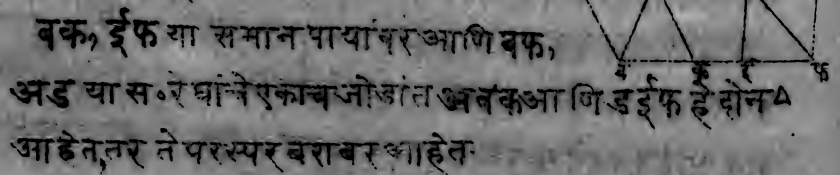 बक, ईफ या समान पायांवर आणि बफ,
ब क ई फ
अड या स॰रेघांचे एकाच जोडींत अबक आणि डईफ हे दोन △
आहेत, तर ते परस्पर बराबर आहेत.